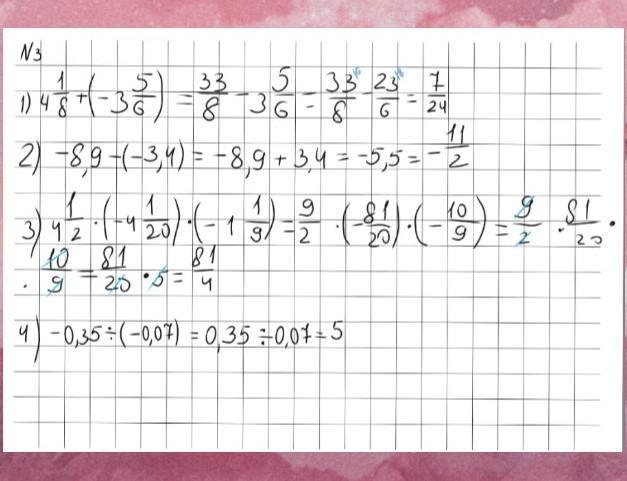 N3
1) 4 1/8 + (-3 5/6) = 33/8 - 3 5/6 = 33/8 - 23/6 = 7/24
2) -8,9 - (-3,4) = -8,9 + 3,4 = -5,5 = - 11/2
3) 4 1/2 · (-4 1/20) · (-1 1/9) = 9/2 · (-81/20) · (-10/9) = 9/2 · 81/20 ·
· 10/9 = 81/20 · 5 = 81/4
4) -0,35 ÷ (-0,07) = 0,35 ÷ 0,07 = 5